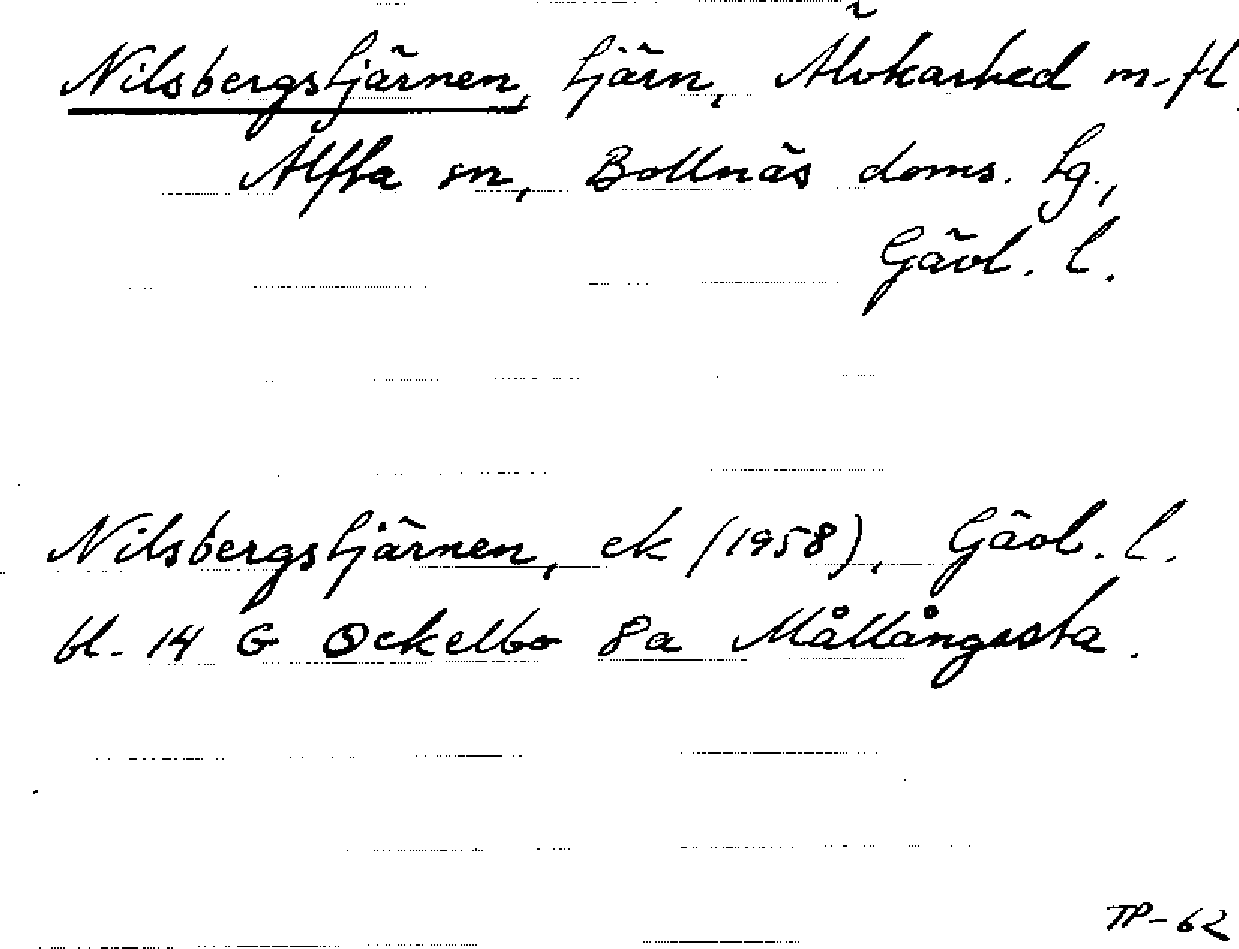 Nilsbergstjärnen, tjärn, Älvkarhed m.fl.
Alfta sn, Bollnäs doms. tg.,
Gävl. l.
Nilsbergstjärnen, ek (1958), Gävl. l.
bl. 14 G Ockelbo 8a Mållångssta.
TP-62